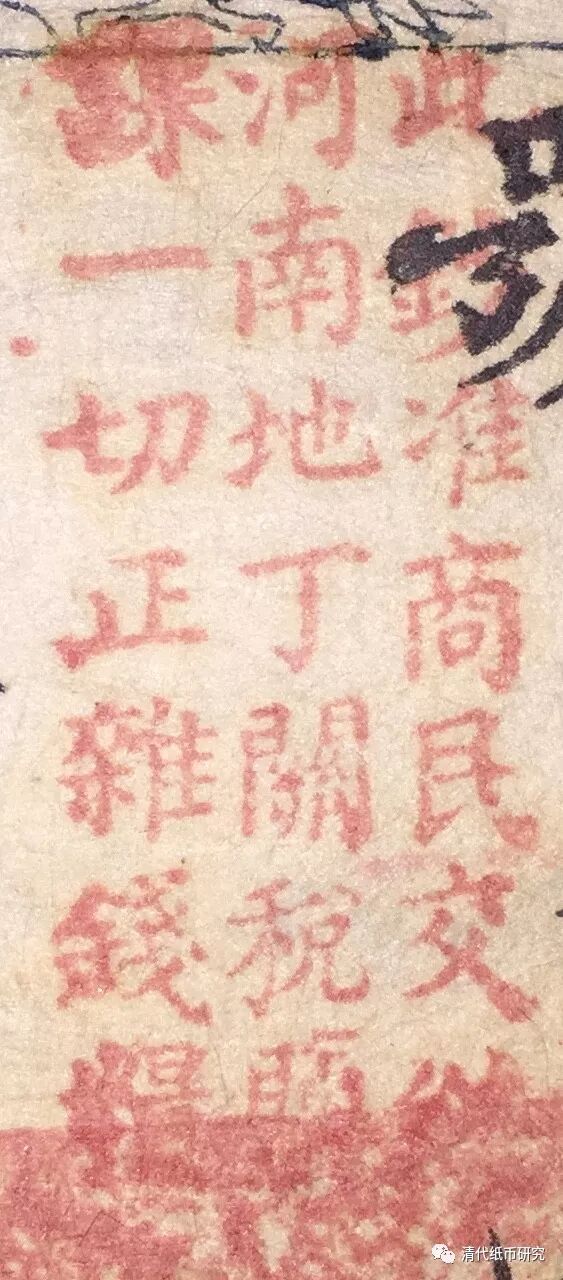 此鈔准商民交
河南地丁關稅鹽
課一切正雜錢糧
清代纸币研究